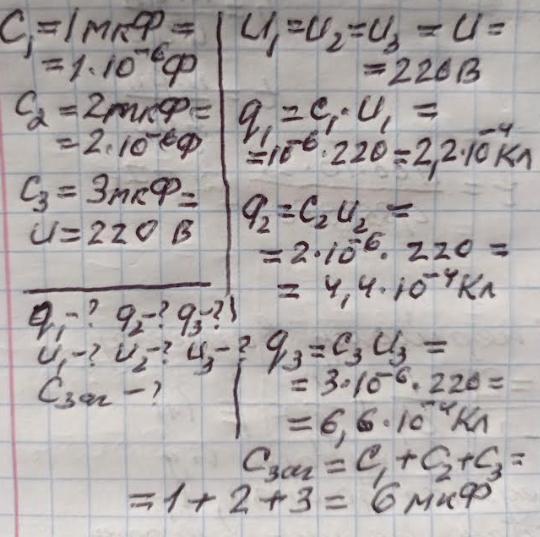 C₁ = 1 мкФ =
= 1·10⁻⁶ Ф
C₂ = 2мкФ =
= 2·10⁻⁶Ф
C₃ = 3мкФ =
U = 220 В
q₁-? q₂-? q₃-?
U₁-? U₂-? U₃-?
Cзаг -?
U₁ = U₂ = U₃ = U =
= 220 В
q₁ = C₁·U₁ =
= 10⁻⁶·220 = 2,2·10⁻⁴ Кл
q₂ = C₂U₂ =
= 2·10⁻⁶·220 =
= 4,4·10⁻⁴Кл
q₃ = C₃U₃ =
= 3·10⁻⁶·220 =
= 6,6·10⁻⁴Кл
Cзаг = C₁ + C₂ + C₃ =
= 1 + 2 + 3 = 6 мкФ